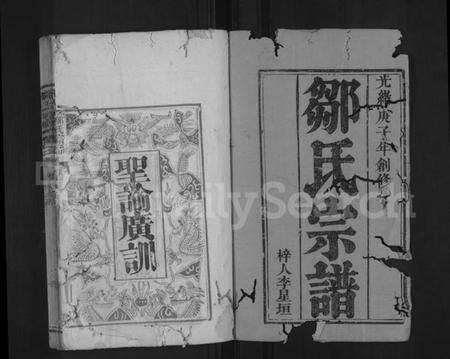 光緒庚子年創修
鄒氏宗譜
梓人李星垣
聖諭廣訓
FamilySearch